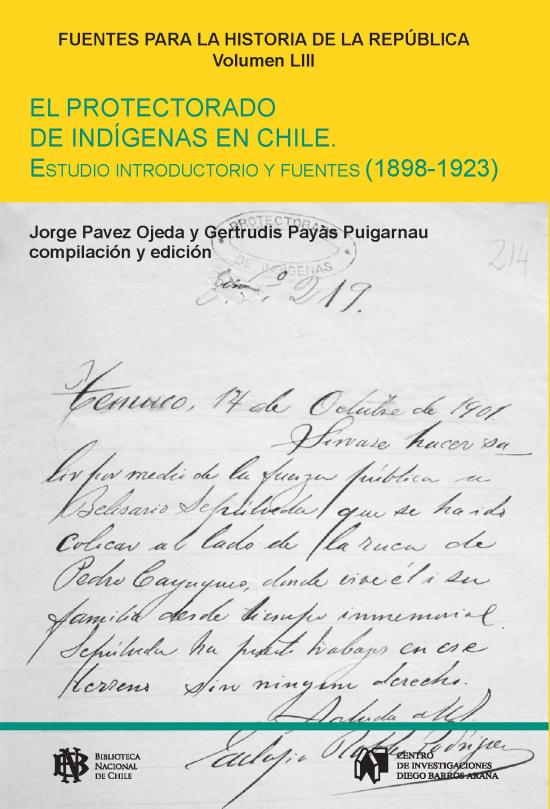 FUENTES PARA LA HISTORIA DE LA REPÚBLICA
Volumen LIII
EL PROTECTORADO
DE INDÍGENAS EN CHILE.
ESTUDIO INTRODUCTORIO Y FUENTES (1898-1923)
Jorge Pavez Ojeda y Gertrudis Payàs Puigarnau
compilación y edición
PROTECTORADO
DE INDÍGENAS
214
Nº 219.
Temuco, 17 de Octubre de 1901.
Sírvase hacer sa
lir por medio de la fuerza pública a
Belisario Sepúlveda que se ha ido
colocar al lado de la ruca de
Pedro Cayuqueo, donde vive él i su
familia desde tiempo inmemorial.
Sepúlveda ha puesto trabajos en ese
terreno sin ningun derecho.
Saluda a Ud.
Eulojio Robles Rodríguez
BIBLIOTECA
NACIONAL
DE CHILE
CENTRO
DE INVESTIGACIONES
DIEGO BARROS ARANA